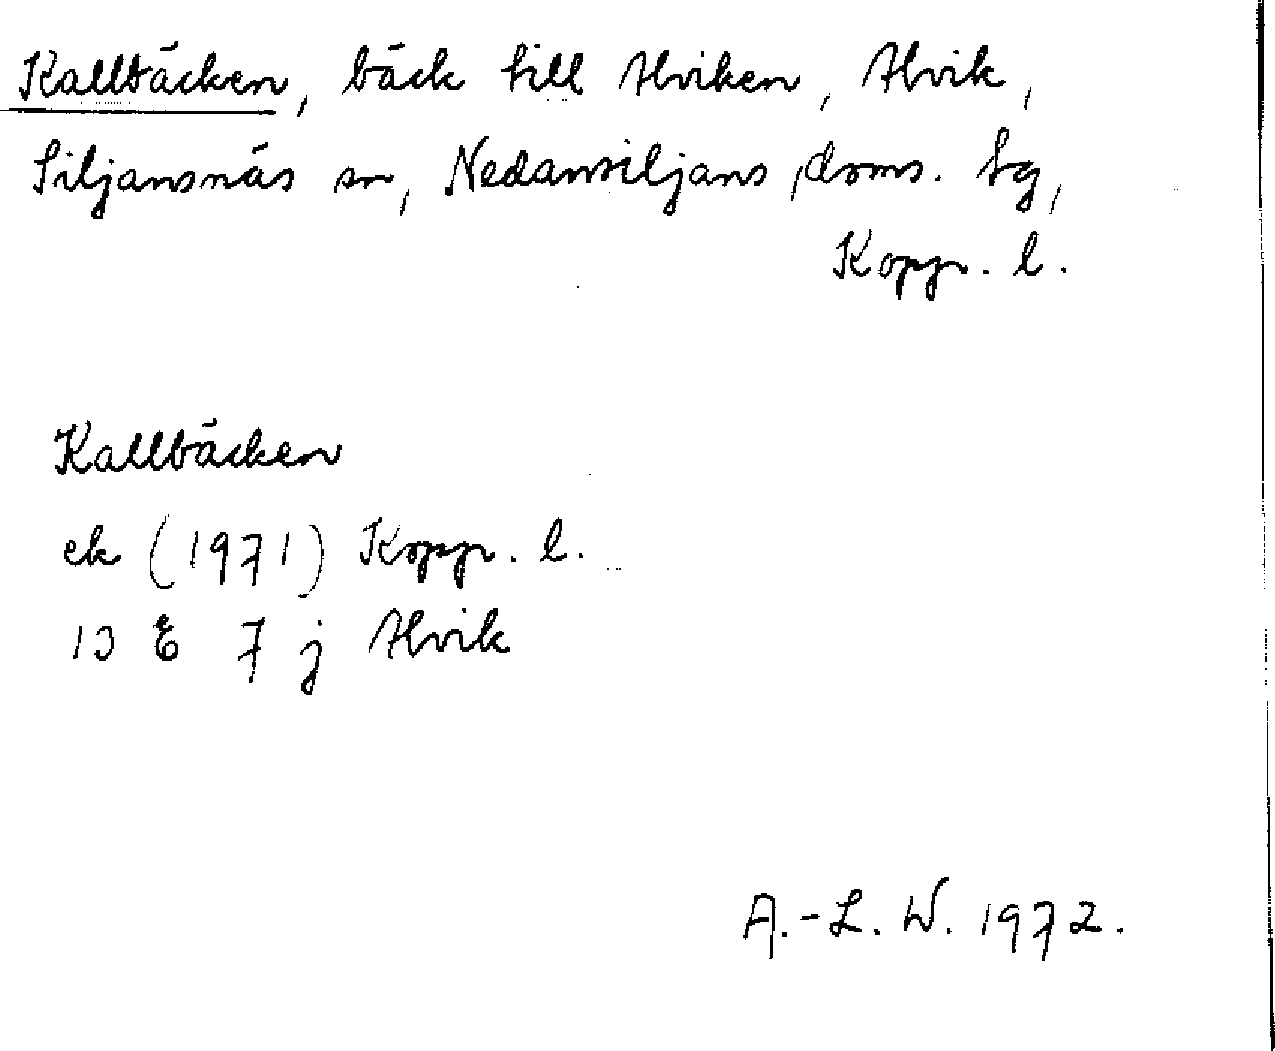 Kallbäcken, bäck till Alviken, Alvik,
Siljansnäs sn, Nedansiljans doms. tg,
Kopp. l.
Kallbäcken
ek (1971) Kopp. l.
13 E 7 j Alvik
A.-L. W. 1972.